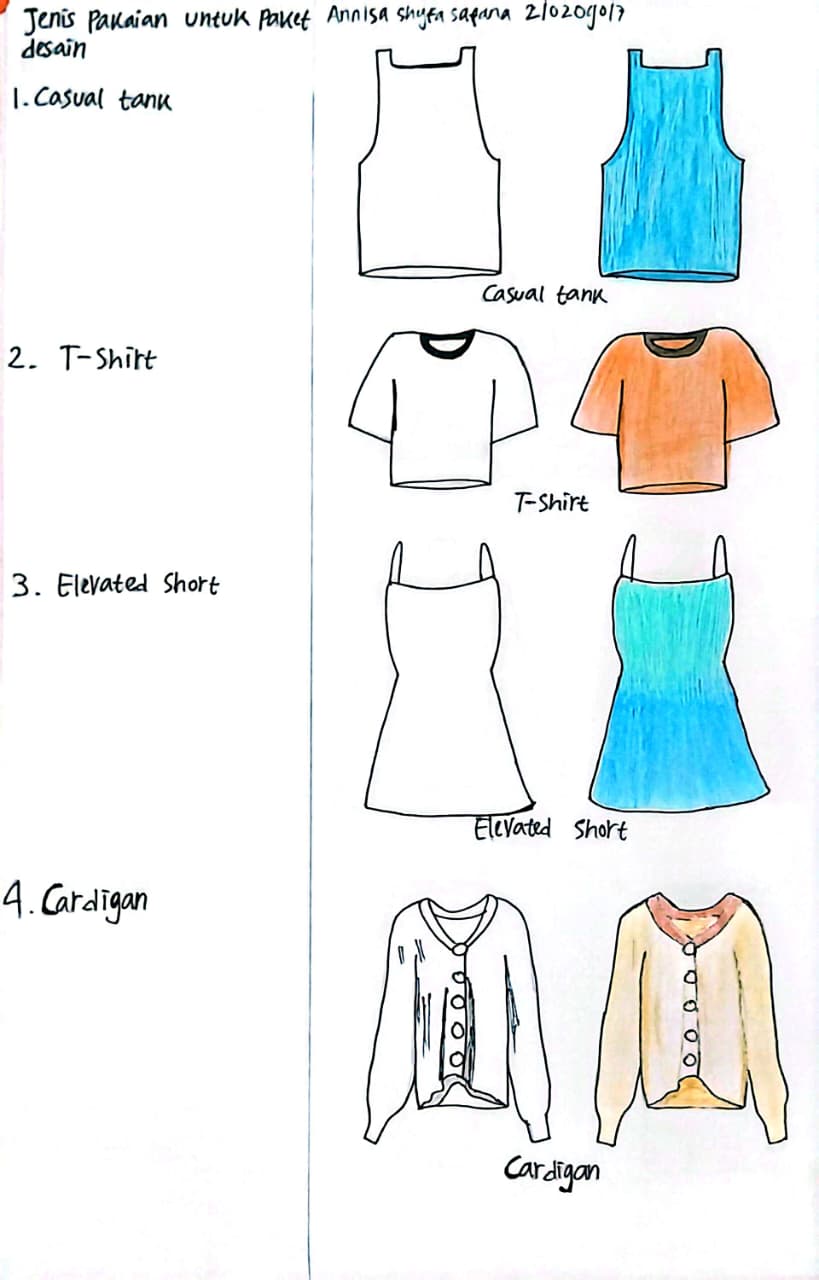 Jenis Pakaian untuk Paket Annisa shyfa safana 210209017
desain
1. Casual tank
Casual tank
2. T-Shirt
T-Shirt
3. Elevated Short
Elevated Short
4. Cardigan
Cardigan